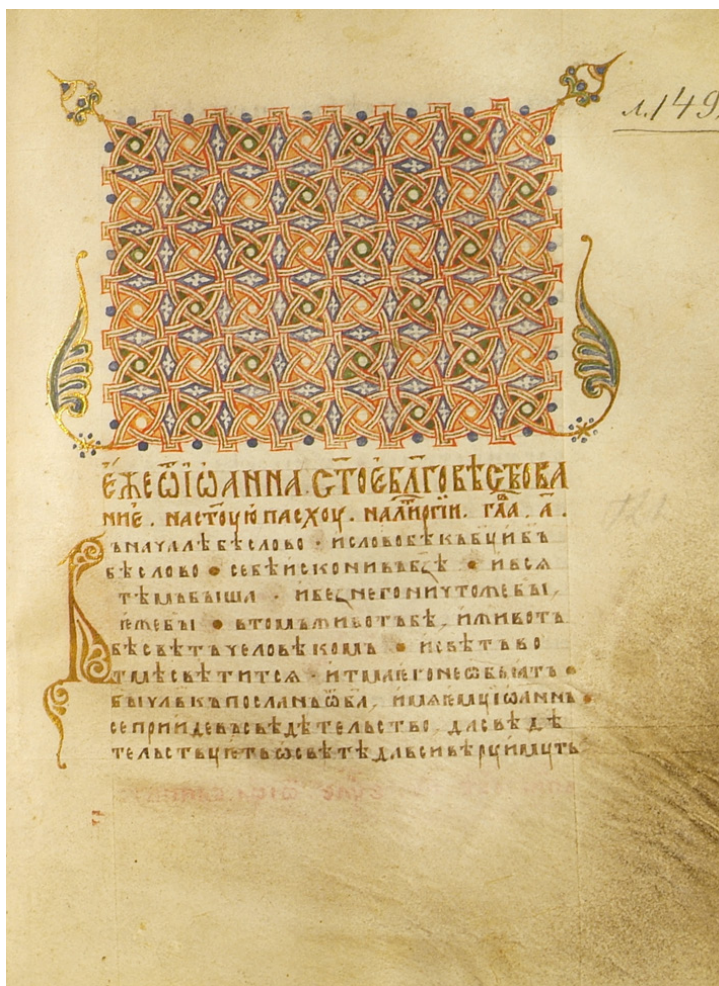 л.149
Е҆́же ѿ іѡанна. ст҃ое бл҃говѣствова
ние. настоую пасхоу. налітⷬ҇ргїи. гл҃а. а҃.
Въначалѣбѣслово · исловобѣкъбц҃и бъ
бѣслово • себѣисконивъбз҃ѣ • ився
тѣмъбышѧ · ибезнегоничтожебы,
ѥжебы • втомъживотъбѣ, иживотъ
бѣсвѣтъчеловѣкомъ • исвѣтъво
тмѣсвѣтится · итмаѥгонеѡбьятъ •
бычл҃вкъпосланъѿба҃, имяѥмꙋіѡаннъ •
сеприидевъсвѣдѣтельство, дасвѣдѣ
тельствꙋѥтьѡсвѣтѣдавсивѣрꙋимꙋть